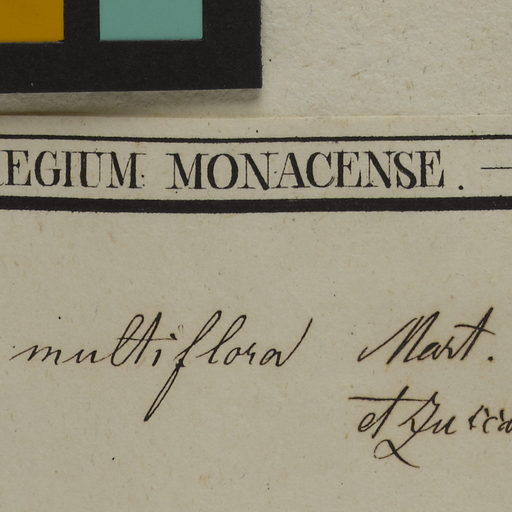 REGIUM MONACENSE.
multiflora Mart.
et Zucca